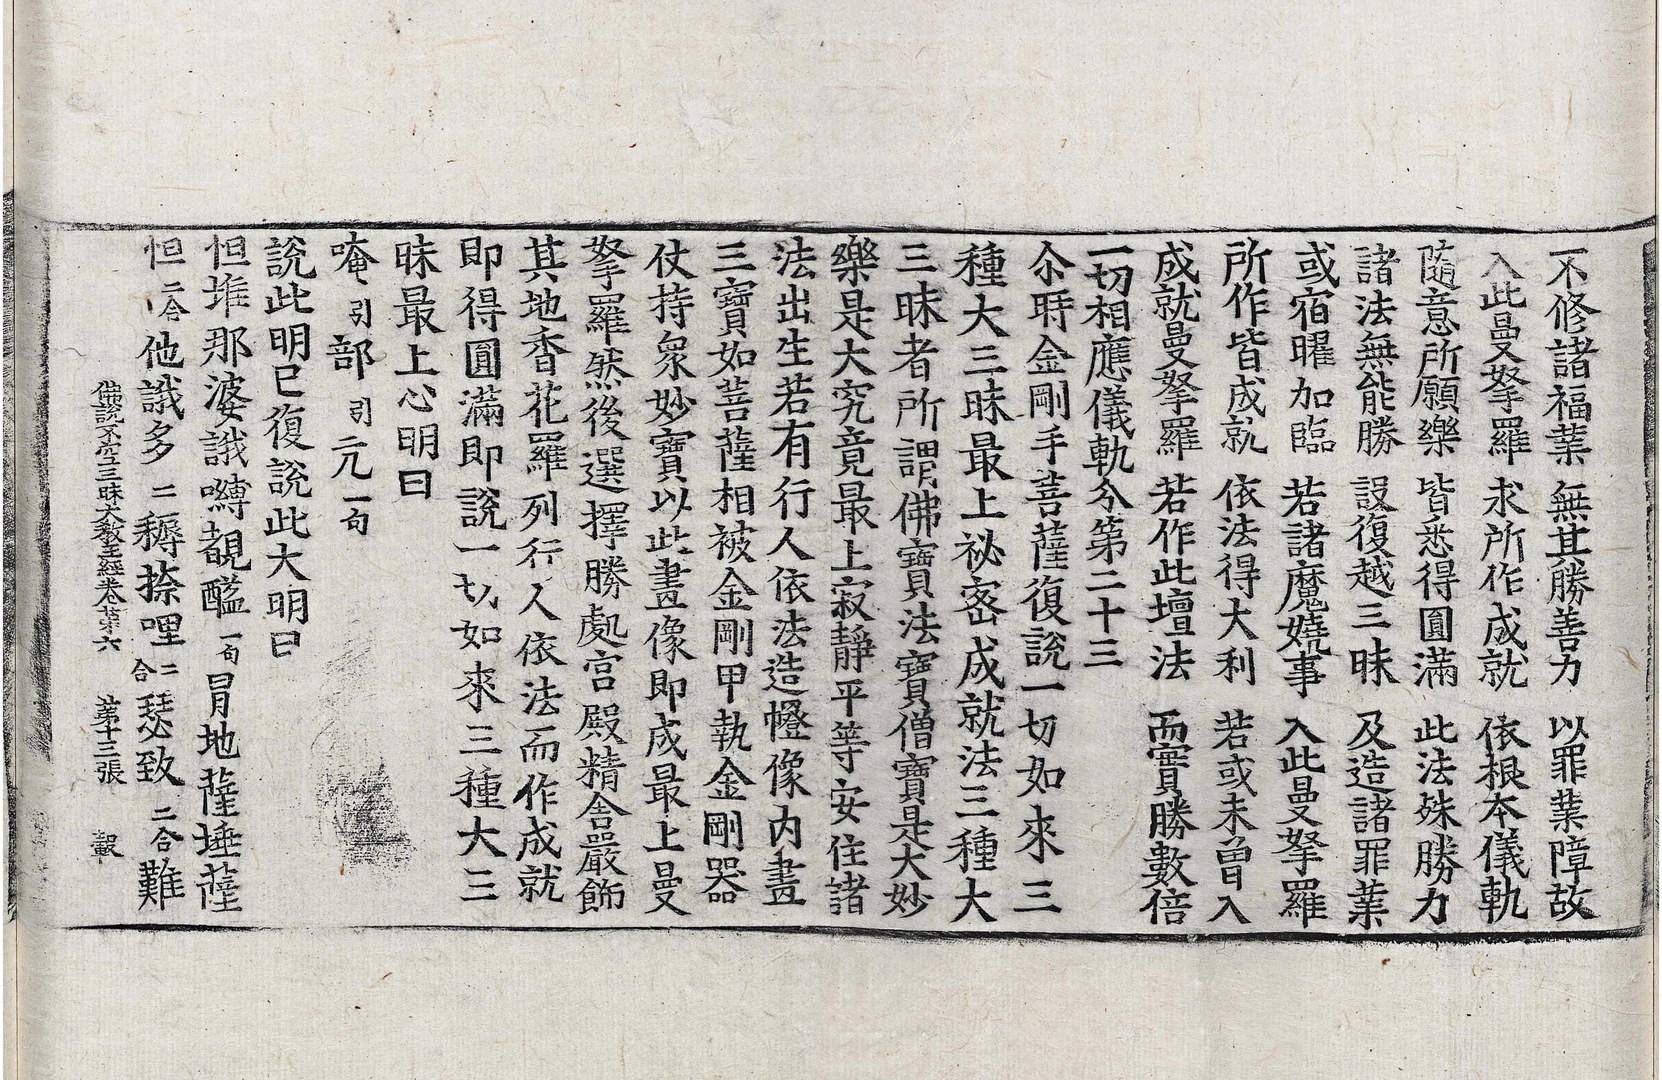 不修諸福業　無其勝善力　以罪業障故
入此曼拏羅　求所作成就　依根本儀軌
隨意所願樂　皆悉得圓滿　此法殊勝力
諸法無能勝　設復越三昧　及造諸罪業
或宿曜加臨　若諸魔嬈事　入此曼拏羅
所作皆成就　依法得大利　若或未曾入
成就曼拏羅　若作此壇法　而實勝數倍
一切相應儀軌分第二十三
尒時金剛手菩薩復說一切如來三
種大三昧最上祕密成就法三種大
三昧者所謂佛寶法寶僧寶是大妙
樂是大究竟最上寂靜平等安住諸
法出生若有行人依法造㡧像内畫
三寶如菩薩相被金剛甲執金剛器
仗持衆妙寶以此畫像即成最上曼
拏羅然後選擇勝處宮殿精舍嚴飾
其地香花羅列行人依法而作成就
即得圓滿即說一切如來三種大三
昧最上心明曰
唵引部引元一句
說此明已復說此大明曰
怛堆那婆誐嚩覩醯一句冐地薩埵薩
怛二合他誐多二䅶捺哩二合瑟致二合難
佛說不空三昧大教王經卷第六　第十三張　轂